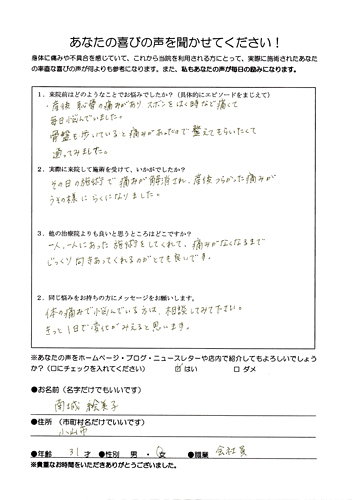 あなたの喜びの声を聞かせてください！
身体に痛みや不具合を感じていて、これから当院を利用される方にとって、実際に施術されたあなた
の率直な喜びの声が何よりも参考になります。また、私もあなたの声が毎日の励みになります。
1．来院前はどのようなことでお悩みでしたか？（具体的にエピソードをまじえて）
・産後 恥骨の痛みがあり ズボンをはく時など痛くて
毎日悩んでいました。
骨盤も歩いていると痛みがあったので整えてもらいたくて
通ってみました。
2．実際に来院して施術を受けて、いかがでしたか？
その日の施術で痛みが解消され、産後つらかった痛みが
うその様に らくになりました。
3．他の治療院よりも良いと思うところはどこですか？
一人、一人にあった施術をしてくれて、痛みがなくなるまで
じっくり向きあってくれるのがとても良いです。
2．同じ悩みをお持ちの方にメッセージをお願いします。
体の痛みで悩んでいる方は、相談してみて下さい。
きっと1日で変化がみえると思います。
※あなたの声をホームページ・ブログ・ニュースレターや店内で紹介してもよろしいでしょう
か？（口にチェックを入れてください） ☑ はい □ ダメ
●お名前（名字だけでもいいです）
南城 絵美子
●住所 （市町村名だけでいいです）
小山市
●年齢 31才 ●性別 男・女 ●職業 会社員
※貴重なお時間をいただきありがとうございました。